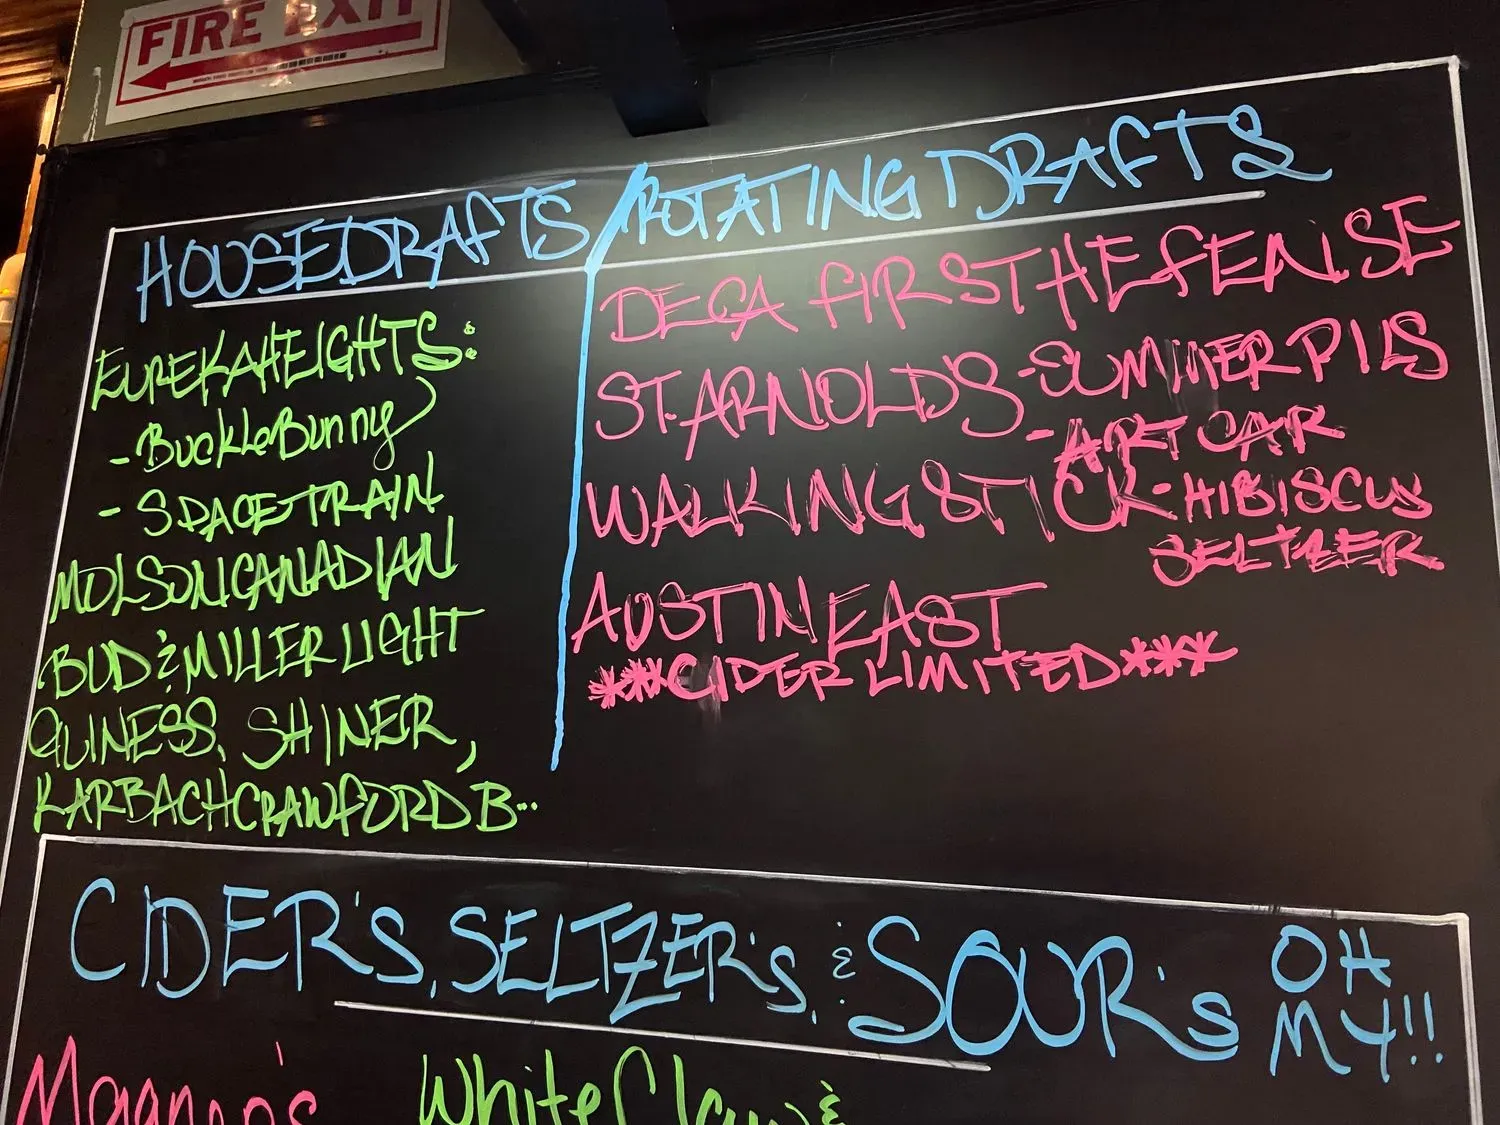 FIRE EXIT
HOUSE DRAFTS / ROTATING DRAFTS
EUREKA HEIGHTS:
- Buckle Bunny
- SPACE TRAIN
MOLSON CANADIAN
BUD & MILLER LIGHT
GUINESS, SHINER,
KARBACH CRAWFORD B...
DECA FIRST HEFENISE
ST. ARNOLD'S - SUMMER PILS
- ART CAR
WALKING STICK - HIBISCUS
SELTZER
AUSTIN EAST
***CIDER LIMITED***
CIDER'S, SELTZER'S, & SOUR'S OH
MY!!
White Claw &